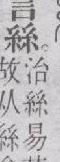 言絲。
治絲易
故从絲